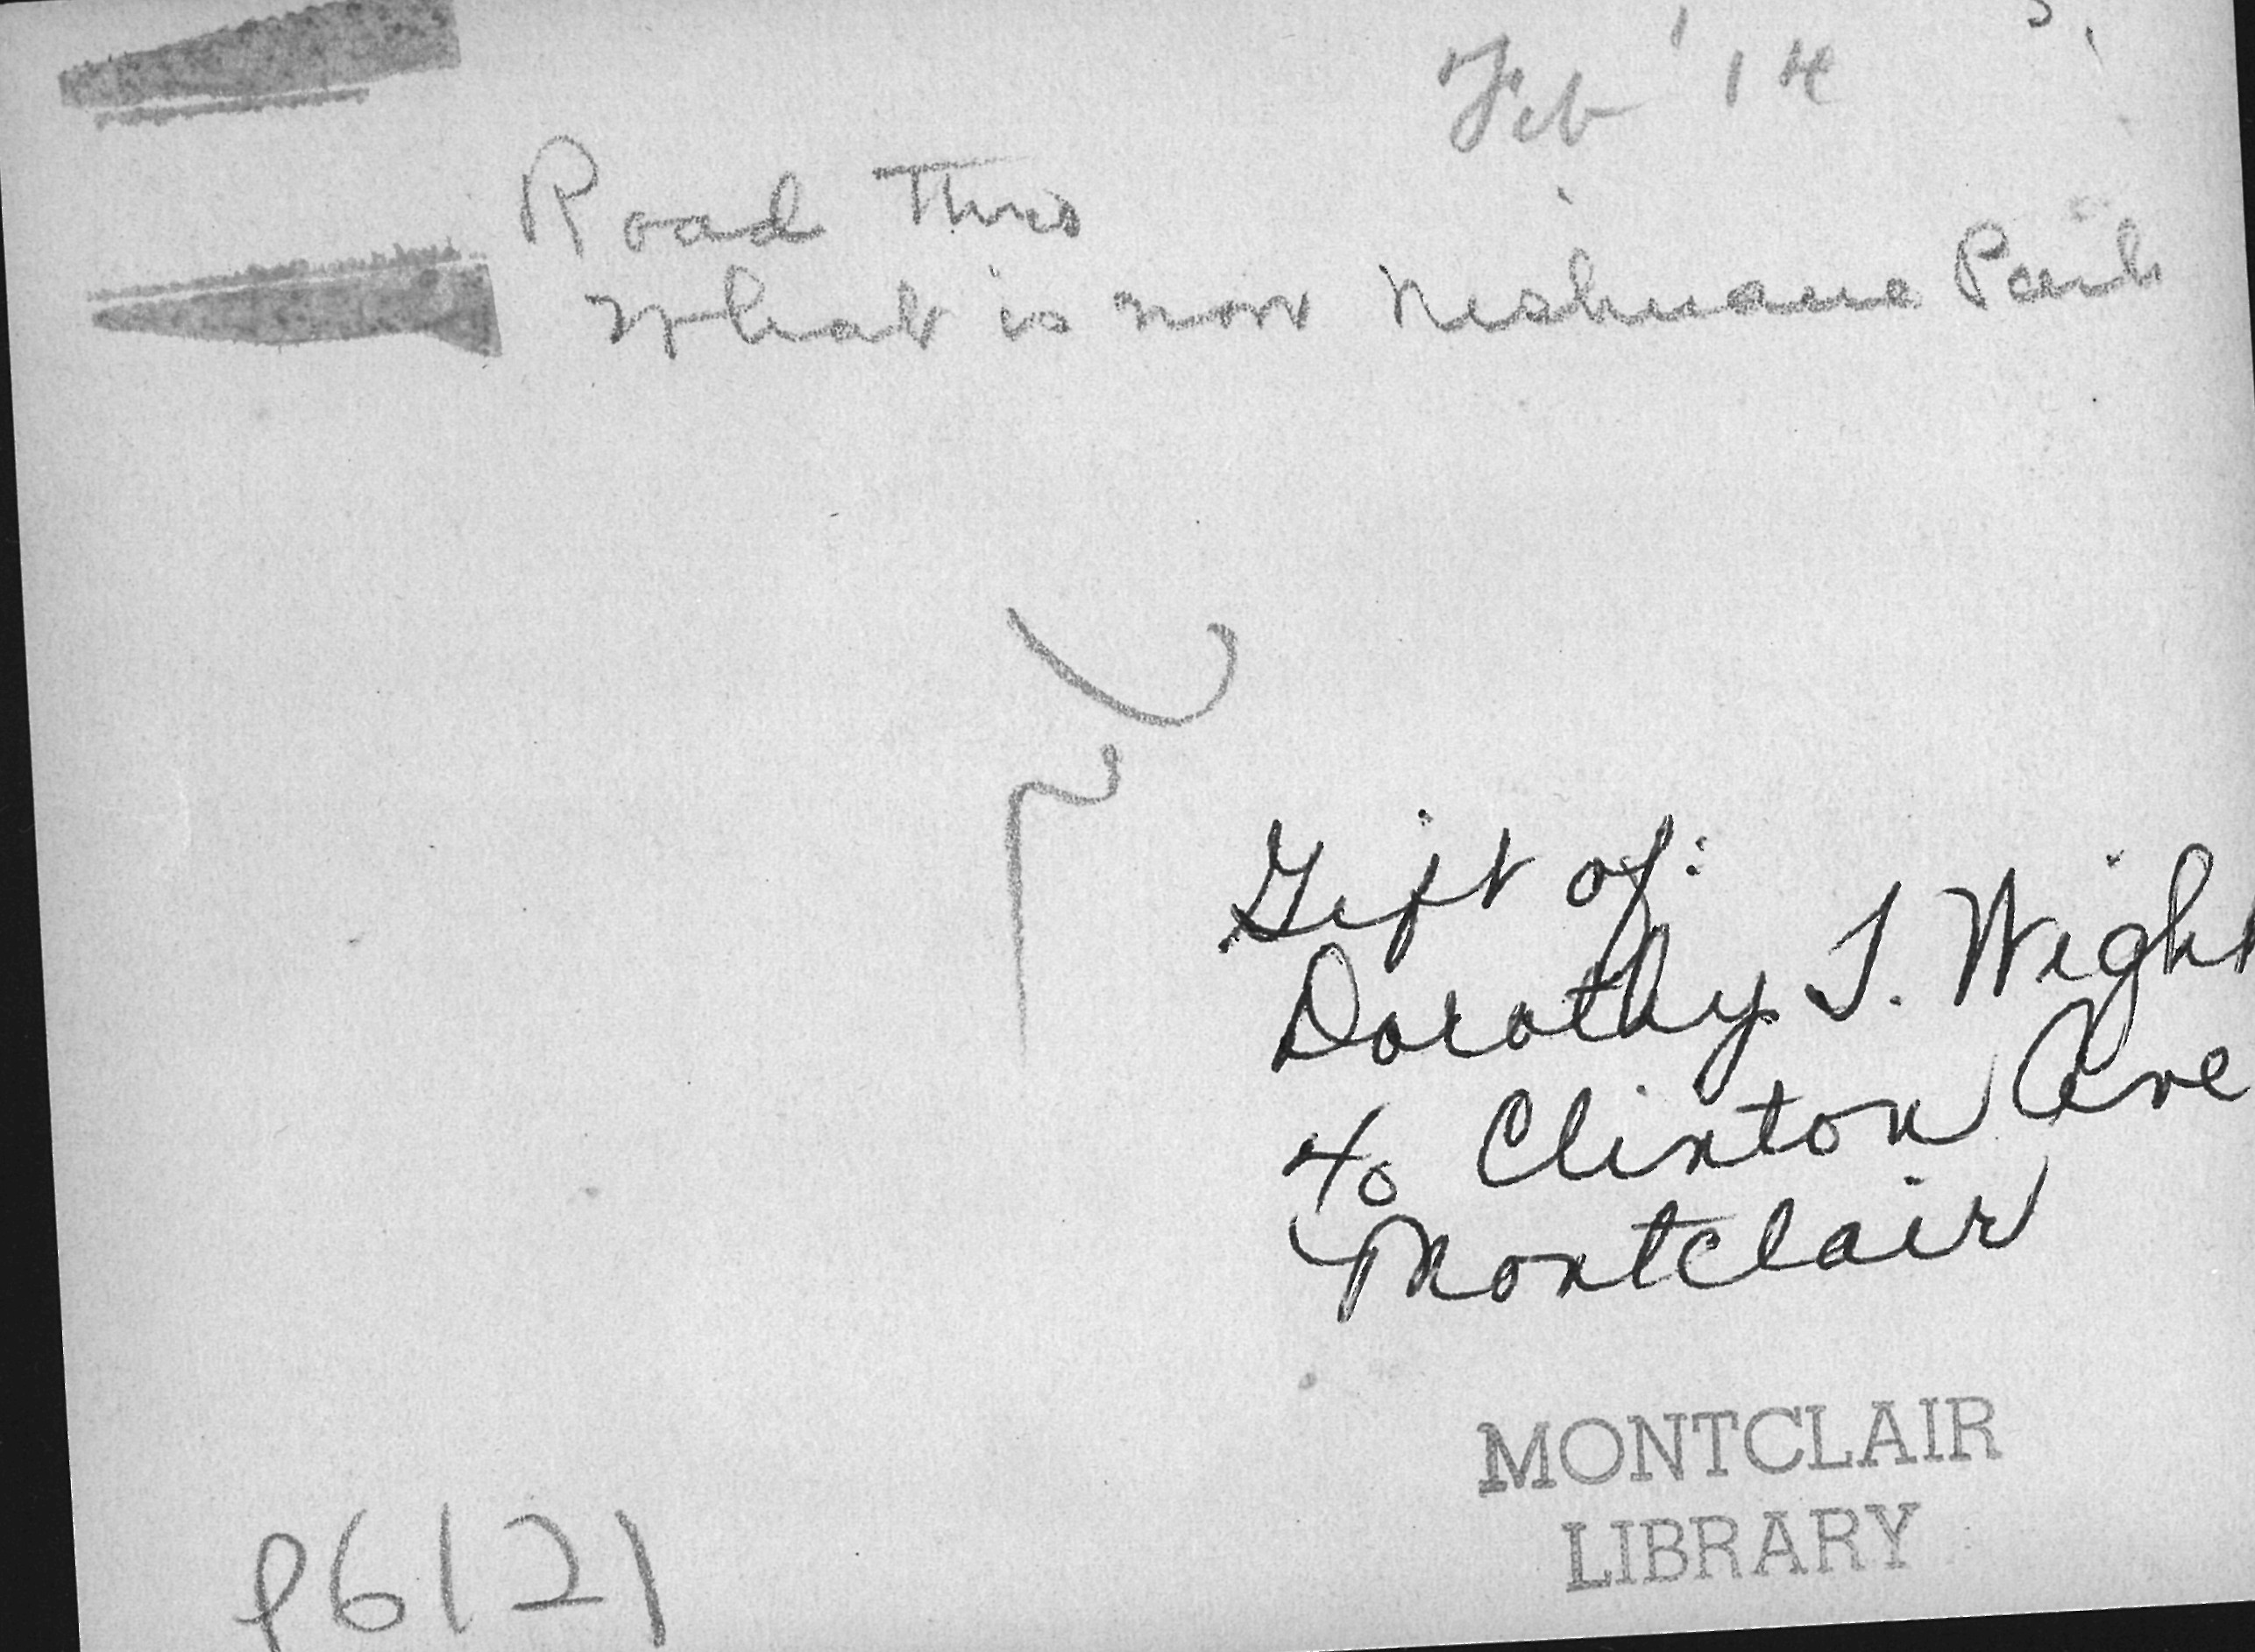 Feb '14
Road Thro
What is now Nishuane Park
Gift of:
Dorothy T. Wight
40 Clinton Ave
Montclair
MONTCLAIR
LIBRARY
p6121